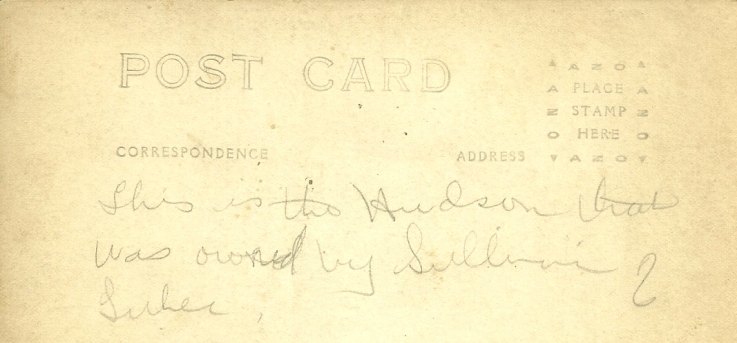 POST CARD
AZO
A PLACE A
Z STAMP Z
O HERE O
AZO
CORRESPONDENCE ADDRESS
This is the Hudson that
was owned by Sullivan ?